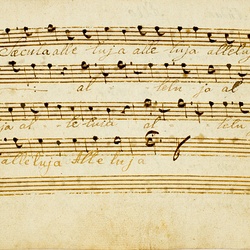 Saecula alle luja alle luja alleluj
al lelu ja al
ja al le luia al lelu
alleluja Alle luja